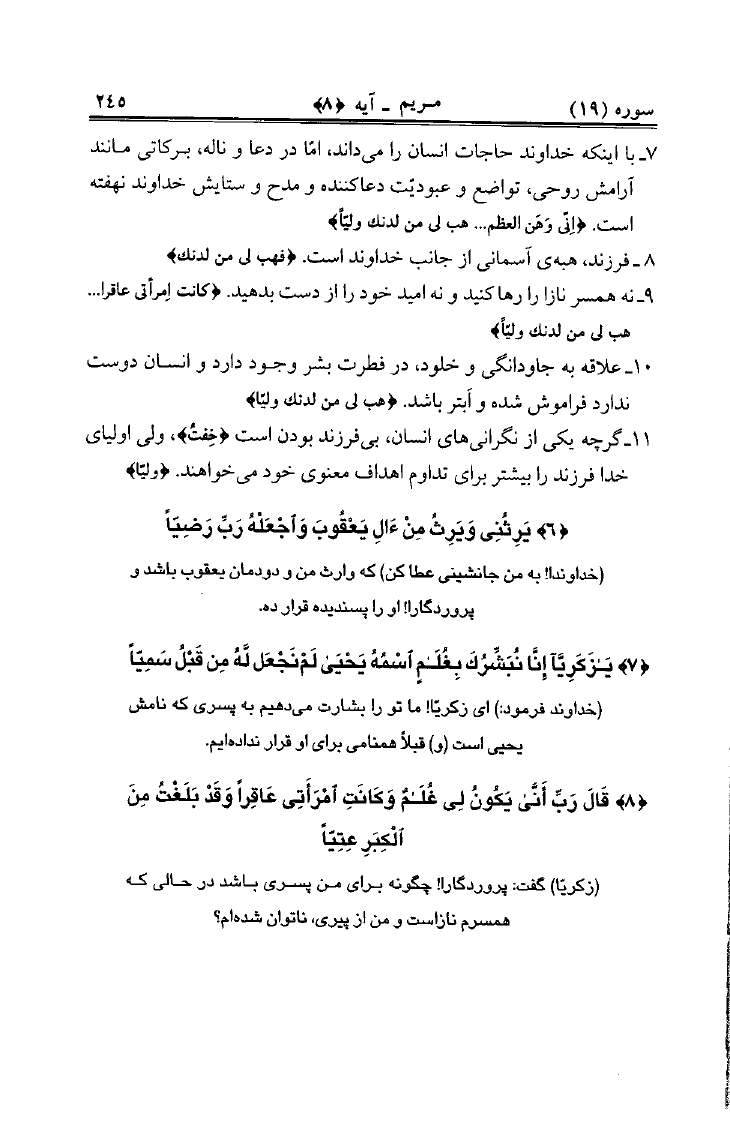 سوره (١٩) مریم ـ آیه ﴿٨﴾ ٢٤٥
٧ـ با اینکه خداوند حاجات انسان را می‌داند، امّا در دعا و ناله، برکاتی مانند
آرامش روحی، تواضع و عبودیّت دعاکننده و مدح و ستایش خداوند نهفته
است. ﴿اِنّی وَهَن العظم... هب لی من لدنك ولیّاً﴾
٨ ـ فرزند، هبه‌ی آسمانی از جانب خداوند است. ﴿فهب لی من لدنك﴾
٩ـ نه همسر نازا را رها کنید و نه امید خود را از دست بدهید. ﴿كانت اِمرأتی عاقرا...
هب لی من لدنك ولیّاً﴾
١٠ـ علاقه به جاودانگی و خلود، در فطرت بشر وجود دارد و انسان دوست
ندارد فراموش شده و اَبتر باشد. ﴿هب لی من لدنك ولیّا﴾
١١ـ گرچه یکی از نگرانی‌های انسان، بی‌فرزند بودن است ﴿خِفتُ﴾، ولی اولیای
خدا فرزند را بیشتر برای تداوم اهداف معنوی خود می‌خواهند. ﴿ولیّا﴾
﴿٦﴾ يَرِثُنِى وَيَرِثُ مِنْ ءَالِ يَعْقُوبَ وَٱجْعَلْهُ رَبِّ رَضِيّاً
(خداوندا! به من جانشینی عطا کن) که وارث من و دودمان یعقوب باشد و
پروردگارا! او را پسندیده قرار ده.
﴿٧﴾ يَـٰزَكَرِيَّآ إِنَّا نُبَشِّرُكَ بِغُلَـٰمٍ ٱسْمُهُ يَحْيَىٰ لَمْ نَجْعَل لَّهُ مِن قَبْلُ سَمِيّاً
(خداوند فرمود:) ای زکریّا! ما تو را بشارت می‌دهیم به پسری که نامش
یحیی است (و) قبلاً همنامی برای او قرار نداده‌ایم.
﴿٨﴾ قَالَ رَبِّ أَنَّىٰ يَكُونُ لِى غُلَـٰمٌ وَكَانَتِ ٱمْرَأَتِى عَاقِراً وَقَدْ بَلَغْتُ مِنَ
ٱلْكِبَرِ عِتِيّاً
(زکریّا) گفت: پروردگارا! چگونه برای من پسری باشد در حالی که
همسرم نازاست و من از پیری، ناتوان شده‌ام؟